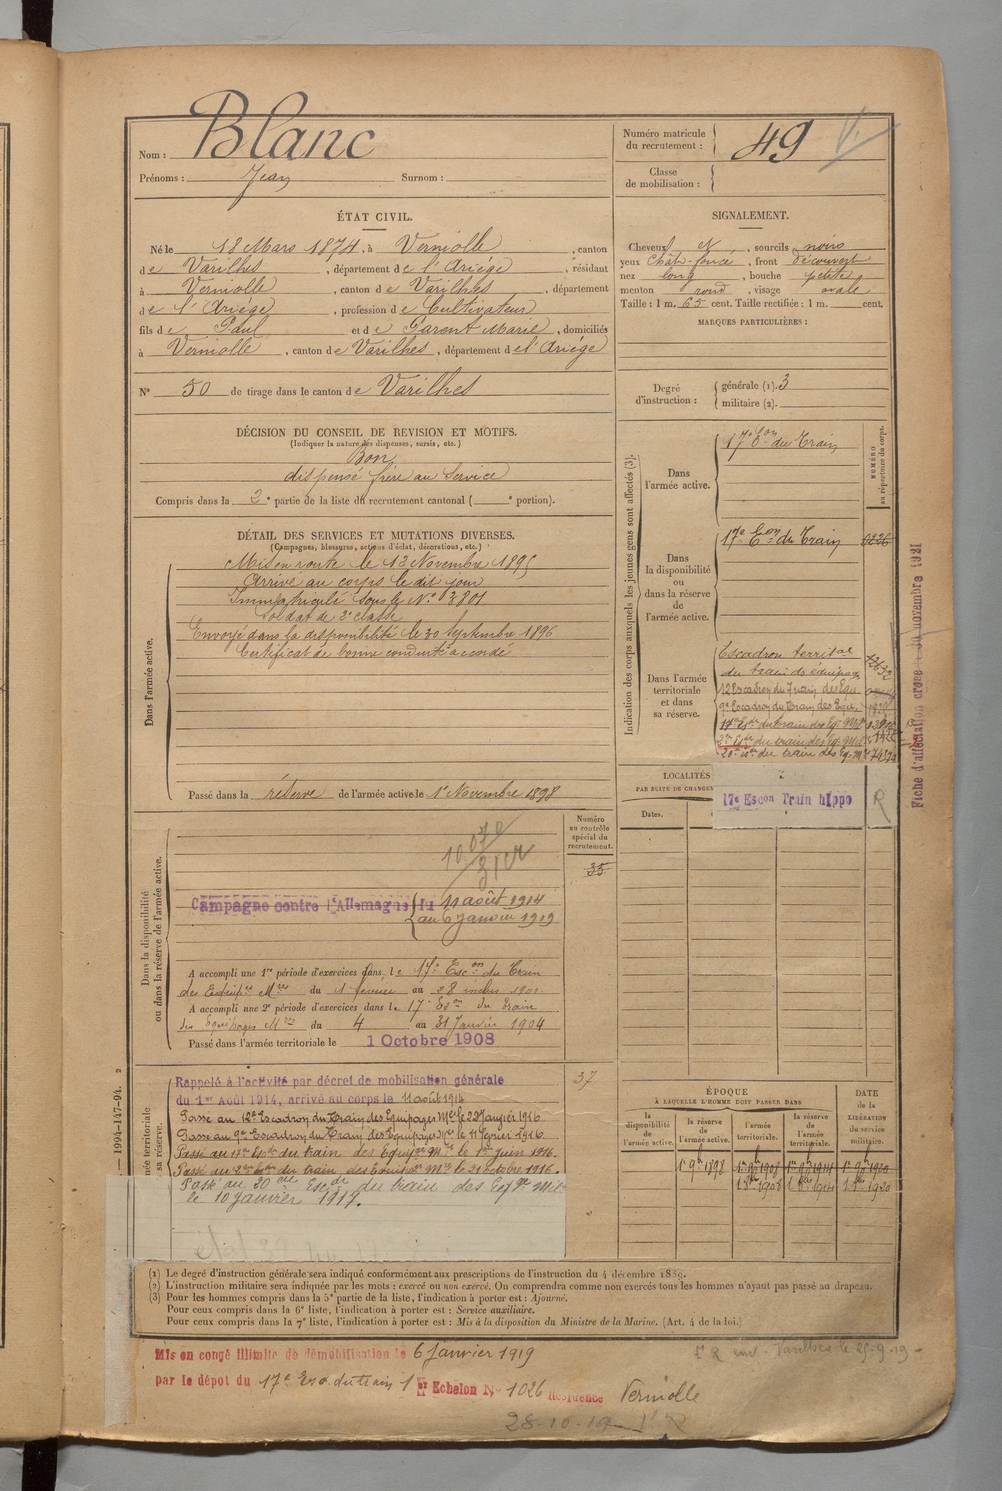 Nom : Blanc
Prénoms : Jean Surnom :
Numéro matricule du recrutement : 49
Classe de mobilisation :
ÉTAT CIVIL.
Né le 18 Mars 1874, à Verniolle, canton
de Varilhes, département de l'Ariége, résidant
à Verniolle, canton de Varilhes, département
de l'Ariége, profession de Cultivateur
fils de Paul et de Parent Marie, domiciliés
à Verniolle, canton de Varilhes, département de l'Ariége
N° 50 de tirage dans le canton de Varilhes
DÉCISION DU CONSEIL DE REVISION ET MOTIFS.
(Indiquer la nature des dispenses, sursis, etc.)
Bon
dispensé frère au Service
Compris dans la 2e partie de la liste du recrutement cantonal ( e portion).
DÉTAIL DES SERVICES ET MUTATIONS DIVERSES.
(Campagnes, blessures, actions d'éclat, décorations, etc.)
Dans l'armée active.
Mis en route le 13 Novembre 1895
Arrivé au corps le dit jour
Immatriculé sous le N° 3801
Soldat de 2e classe
Envoyé dans la disponibilité le 30 Septembre 1896
Certificat de bonne conduite accordé
Passé dans la réserve de l'armée active le 1er Novembre 1898
Numéro au contrôle spécial du recrutement.
35
Dans la disponibilité ou dans la réserve de l'armée active.
Campagne contre l'Allemagne du 11 août 1914
au 6 janvier 1919
A accompli une 1re période d'exercices dans le 17e Escon du Train
des Equipges Mres du 1 février au 28 inclus 1901
A accompli une 2e période d'exercices dans le 17e Eson du Train
des Equipages Mres du 4 au 31 Janvier 1904
Passé dans l'armée territoriale le 1 Octobre 1908
Rappelé à l'activité par décret de mobilisation générale
du 1er Août 1914, arrivé au corps le 11 août 1914
37
Passe au 12e Escadron du Train des Equipages Mres le 22 Janvier 1916
Passe au 9e Escadron du Train des Equipages Mres le 11 février 1916
Passé au 17e Escon du train des Equipges Mres le 1er juin 1916.
Passé au 2me Escon du train des Equipges Mres le 21 octobre 1916.
Passé au 20me Escon du train des Eqges Mres
le 10 janvier 1917.
SIGNALEMENT.
Cheveux N, sourcils noirs
yeux Chât. foncé, front découvert
nez long, bouche petite
menton rond, visage ovale
Taille : 1 m. 65 cent. Taille rectifiée : 1 m. cent.
MARQUES PARTICULIÈRES :
Degré d'instruction : générale (1). 3
militaire (2).
Indication des corps auxquels les jeunes gens sont affectés (3).
NUMÉRO au répertoire du corps.
Dans l'armée active.
17e Eon du Train
Dans la disponibilité ou dans la réserve de l'armée active.
17e Eon du Train
Dans l'armée territoriale et dans sa réserve.
Escadron territal
du train des équipag
12 Escadron du Train des Eqges
9e Escadron du Train des Eqges
17e Escon du train des Eq. Mres
2me Escon du train des Eq. Mres
20e Escon du train des Eq. Mres
17e Escon Train hippo R
Fiche d'affectation créée 30 novembre 1921
LOCALITÉS
PAR SUITE DE CHANGEM
Dates.
ÉPOQUE
À LAQUELLE L'HOMME DOIT PASSER DANS
la disponibilité de l'armée active.
la réserve de l'armée active.
l'armée territoriale.
la réserve de l'armée territoriale.
DATE de la LIBÉRATION du service militaire.
1er 9bre 1898 1er 9bre 1908 1er 9bre 1914 1er 9bre 1920
1er 8bre 1908 1er 8bre 1914 1er 8bre 1920
(1) Le degré d'instruction générale sera indiqué conformément aux prescriptions de l'instruction du 4 décembre 1889.
(2) L'instruction militaire sera indiquée par les mots : exercé ou non exercé. On comprendra comme non exercés tous les hommes n'ayant pas passé au drapeau.
(3) Pour les hommes compris dans la 5e partie de la liste, l'indication à porter est : Ajourné.
Pour ceux compris dans la 6e liste, l'indication à porter est : Service auxiliaire.
Pour ceux compris dans la 7e liste, l'indication à porter est : Mis à la disposition du Ministre de la Marine. (Art. 4 de la loi.)
— 1994-147-94.
Mis en congé illimité de démobilisation le 6 janvier 1919
par le dépot du 17e Esc. du train 1er Echelon N° 1026 Résidence Verniolle
Varilhes le 25-9-19
28-10-19